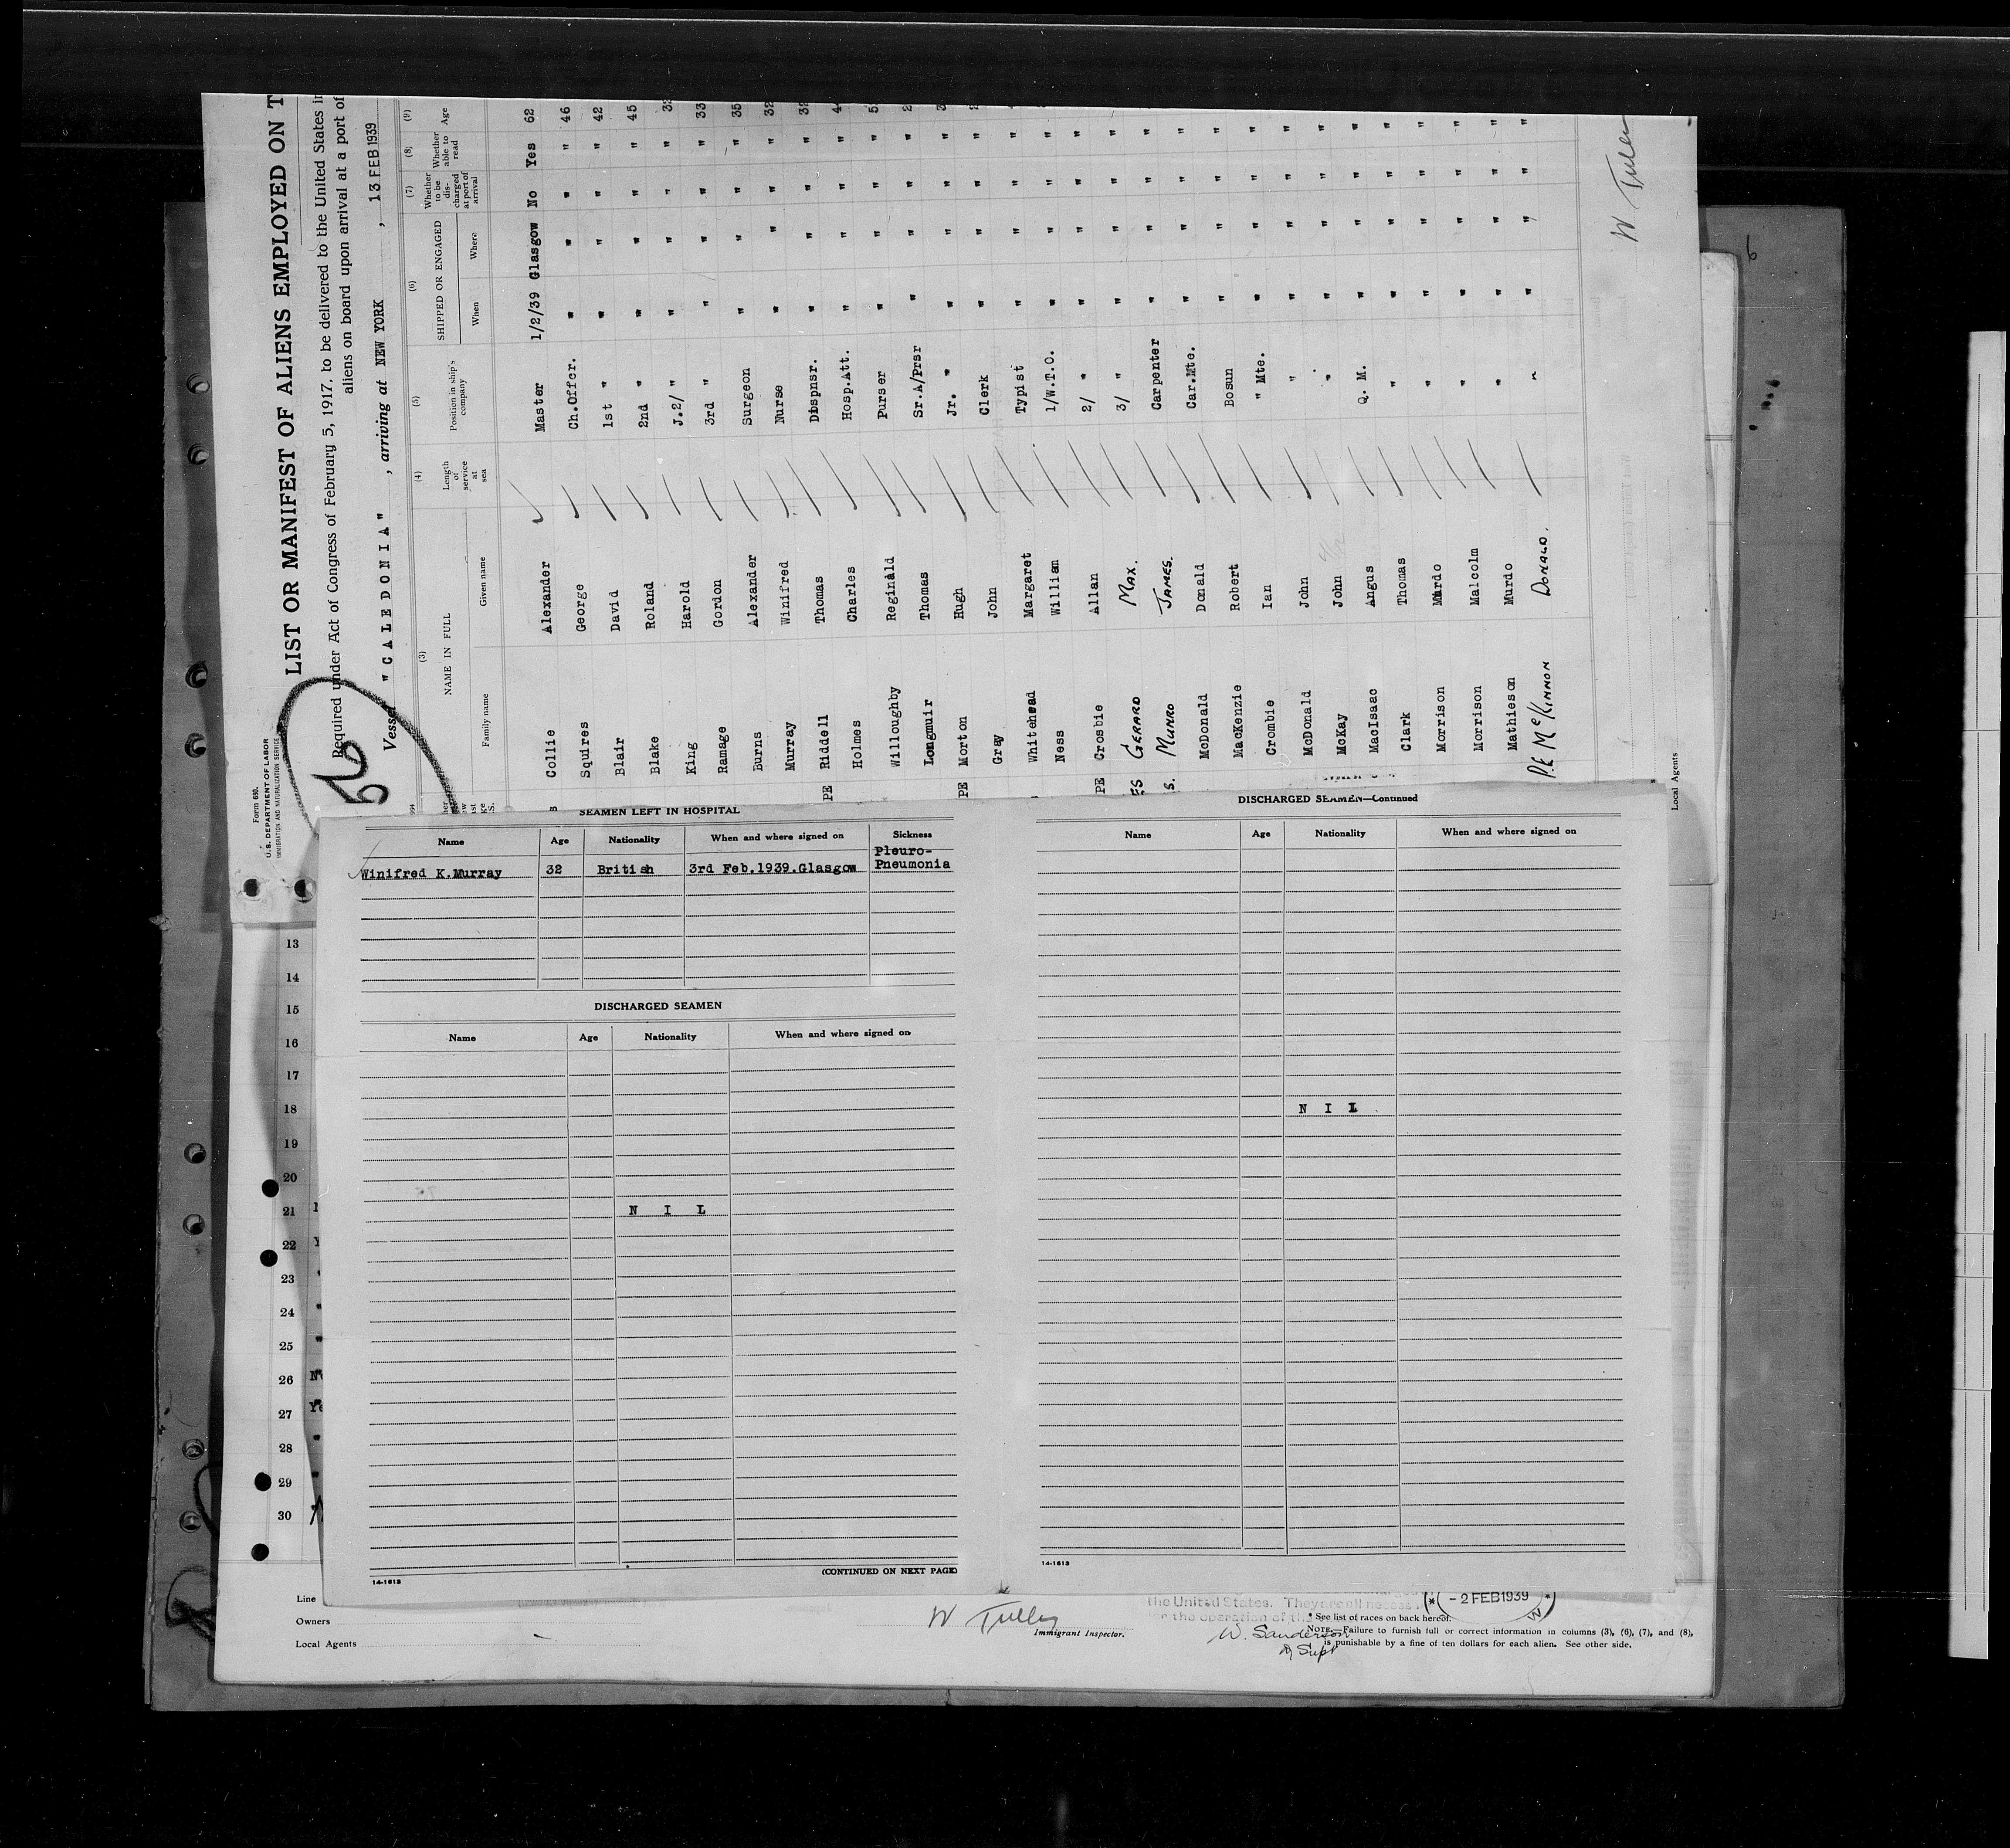 Form 680.
U. S. DEPARTMENT OF LABOR
IMMIGRATION AND NATURALIZATION SERVICE
LIST OR MANIFEST OF ALIENS EMPLOYED ON T
Required under Act of Congress of February 5, 1917, to be delivered to the United States
aliens on board upon arrival at a port of
Vessel "CALEDONIA" , arriving at NEW YORK , 13 FEB 1939
56
(3) (4) (5) (6) (7) (8) (9)
NAME IN FULL Length of service at sea Position in ship's company SHIPPED OR ENGAGED Whether to be discharged at port of arrival Whether able to read Age
Family name Given name When Where
Collie Alexander Master 1/2/39 Glasgow No Yes 62
Squires George Ch.Offcr. " " " " 46
Blair David 1st " " " " " 42
Blake Roland 2nd " " " " " 45
King Harold J.2/ " " " " "
Ramage Gordon 3rd " " " " " 33
Burns Alexander Surgeon " " " " 35
Murray Winifred Nurse " " " " 32
Riddell Thomas Dispnsr. " " " " 32
Holmes Charles Hosp.Att. " " " "
Willoughby Reginald Purser " " " "
Longmuir Thomas Sr.A/Prsr " " " "
PE Morton Hugh Jr. " " " " "
Gray John Clerk " " " "
Whitehead Margaret Typist " " " "
Ness William 1/W.T.O. " " " "
PE Crosbie Allan 2/ " " " " "
ES GERARD MAX. 3/ " " " " "
S. MUNRO JAMES. Carpenter " " " "
McDonald Donald Car.Mte. " " " "
MacKenzie Robert Bosun " " " "
Crombie Ian " Mte. " " " "
McDonald John " " " " "
McKay John " " " " "
MacIsaac Angus Q. M. " " " "
Clark Thomas " " " " "
Morrison Murdo " " " " "
Morrison Malcolm " " " " "
Mathieson Murdo " " " " "
P.E McKINNON DONALD. " " " " "
W Tulley
Local Agents
SEAMEN LEFT IN HOSPITAL
Name Age Nationality When and where signed on Sickness
Winifred K.Murray 32 British 3rd Feb.1939.Glasgow Pleuro-
Pneumonia
DISCHARGED SEAMEN
Name Age Nationality When and where signed on
N I L
(CONTINUED ON NEXT PAGE)
14-1613
DISCHARGED SEAMEN—Continued
Name Age Nationality When and where signed on
N I L
14-1613
13
14
15
16
17
18
19
20
21
22
23
24
25
26
27
28
29
30
Line
Owners
Local Agents
W Tulley
Immigrant Inspector.
the United States. They are all
for the operation of the
- 2 FEB 1939
W. Sanderson
Supt
* See list of races on back hereof.
NOTE.—Failure to furnish full or correct information in columns (3), (6), (7), and (8),
is punishable by a fine of ten dollars for each alien. See other side.